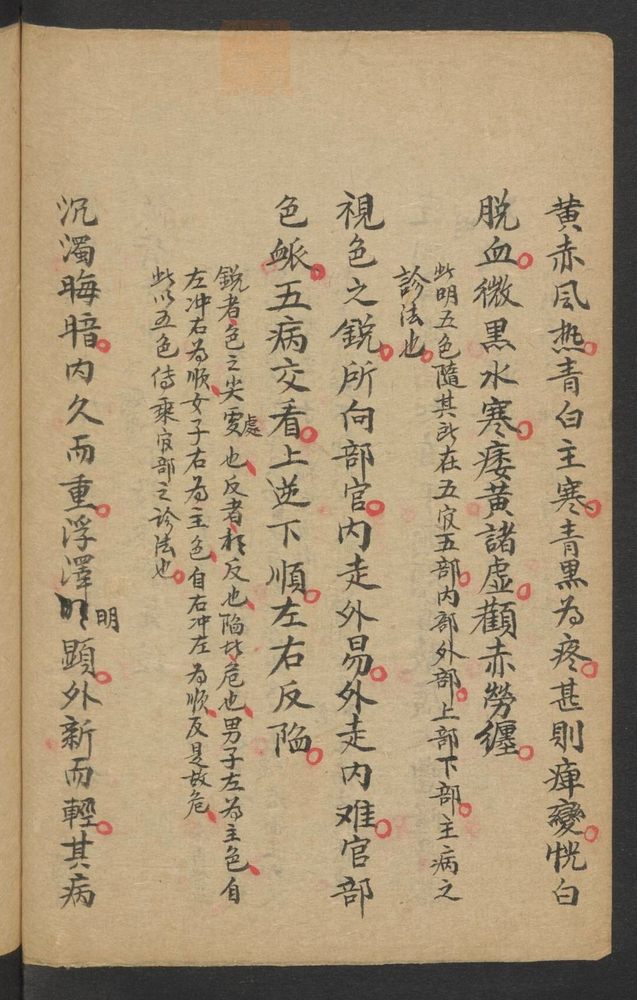 黄赤風热青白主寒青黑為疼甚則痺變恍白
脱血微黑水寒痿黄諸虛顴赤勞纏
此明五色隨其所在五官五部内部外部上部下部主病之
診法也
視色之鋭所向部官内走外易外走内难官部
色脈五病交看上逆下順左右反陥
鋭者色之尖處也反者相反也陥者危也男子左為主色自
左冲右為順女子右為主色自右冲左為順反是故危
此以五色侍乘官部之診法也
沉濁晦暗内久而重浮澤明顕外新而輕其病